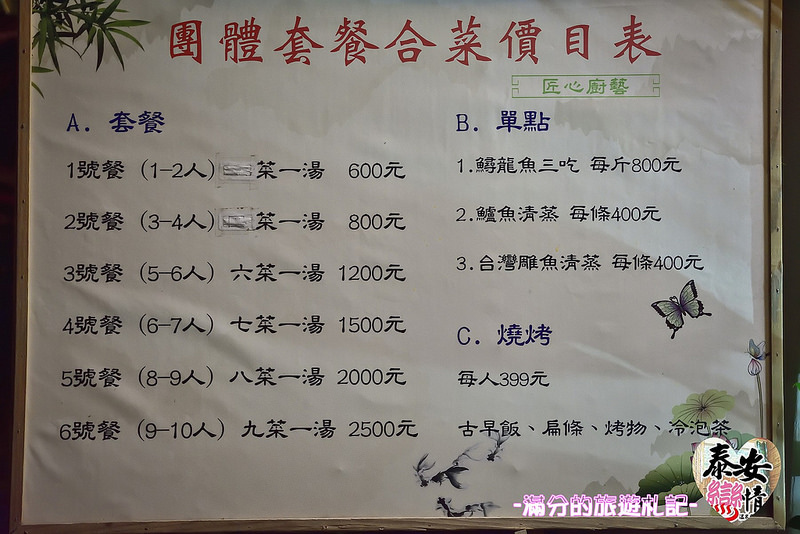 團體套餐合菜價目表
匠心廚藝
A. 套餐
1號餐 (1-2人) 菜一湯 600元
2號餐 (3-4人) 菜一湯 800元
3號餐 (5-6人) 六菜一湯 1200元
4號餐 (6-7人) 七菜一湯 1500元
5號餐 (8-9人) 八菜一湯 2000元
6號餐 (9-10人) 九菜一湯 2500元
B. 單點
1.鱘龍魚三吃 每斤800元
2.鱸魚清蒸 每條400元
3.台灣雕魚清蒸 每條400元
C. 燒烤
每人399元
古早飯、扁條、烤物、冷泡茶
泰安
戀情
-滿分的旅遊札記-